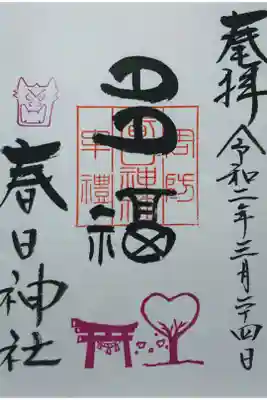 奉拝
令和二年三月二十四日
福
春日神社